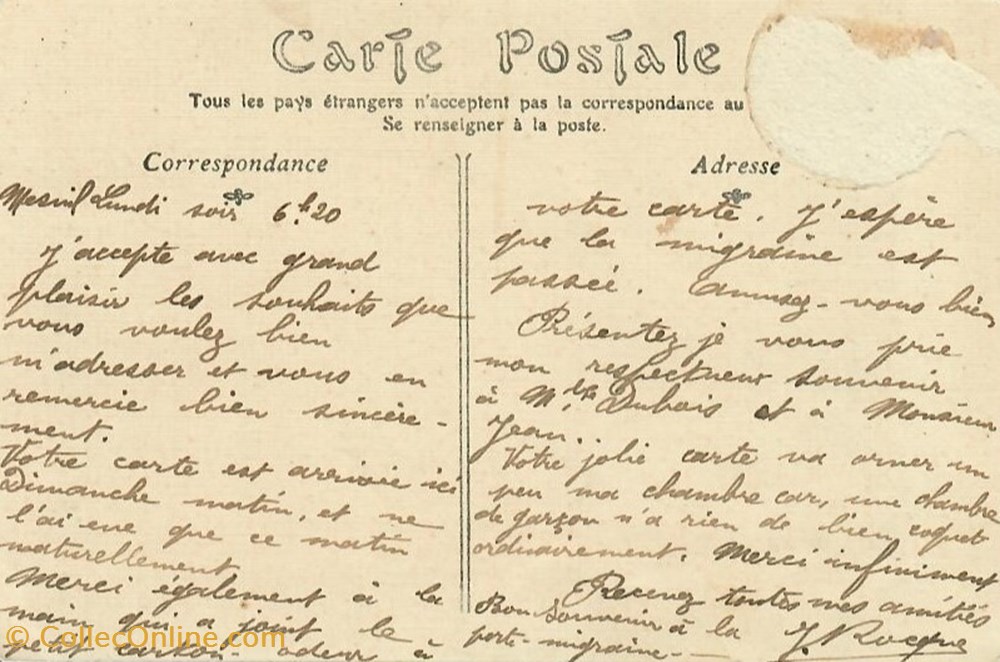 Carte Postale
Tous les pays étrangers n'acceptent pas la correspondance au
Se renseigner à la poste.
Correspondance
Mesnil Lundi soir 6h.20
J'accepte avec grand
plaisir les souhaits que
vous voulez bien
m'adresser et vous en
remercie bien sincère-
ment.
Votre carte est arrivée ici
Dimanche matin, et ne
l'ai eue que ce matin
naturellement
Merci également à la
main qui a joint le
petit carton odeur à
Adresse
votre carte. J'espère
que la migraine est
passée. Amusez-vous bien
Présentez je vous prie
mon respectueux souvenir
à Mlle Dubois et à Monsieur
Jean.
Votre jolie carte va orner un
peu ma chambre car, une chambre
de garçon n'a rien de bien coquet
ordinairement. Merci infiniment
Recevez toutes mes amitiés
Bon souvenir à la
porte-migraine-
J. Rocque
© CollecOnline.com